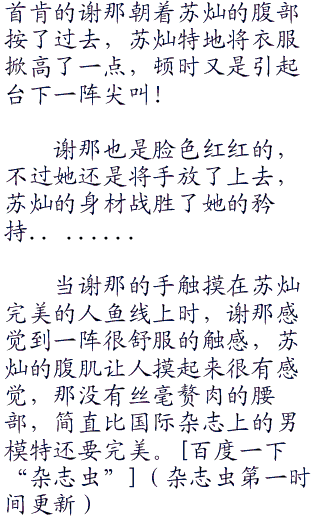 首肯的谢那朝着苏灿的腹部
按了过去，苏灿特地将衣服
掀高了一点，顿时又是引起
台下一阵尖叫！
谢那也是脸色红红的，
不过她还是将手放了上去，
苏灿的身材战胜了她的矜
持．．……
当谢那的手触摸在苏灿
完美的人鱼线上时，谢那感
觉到一阵很舒服的触感，苏
灿的腹肌让人摸起来很有感
觉，那没有丝毫赘肉的腰
部，简直比国际杂志上的男
模特还要完美。[百度一下
“杂志虫”]（杂志虫第一时
间更新）